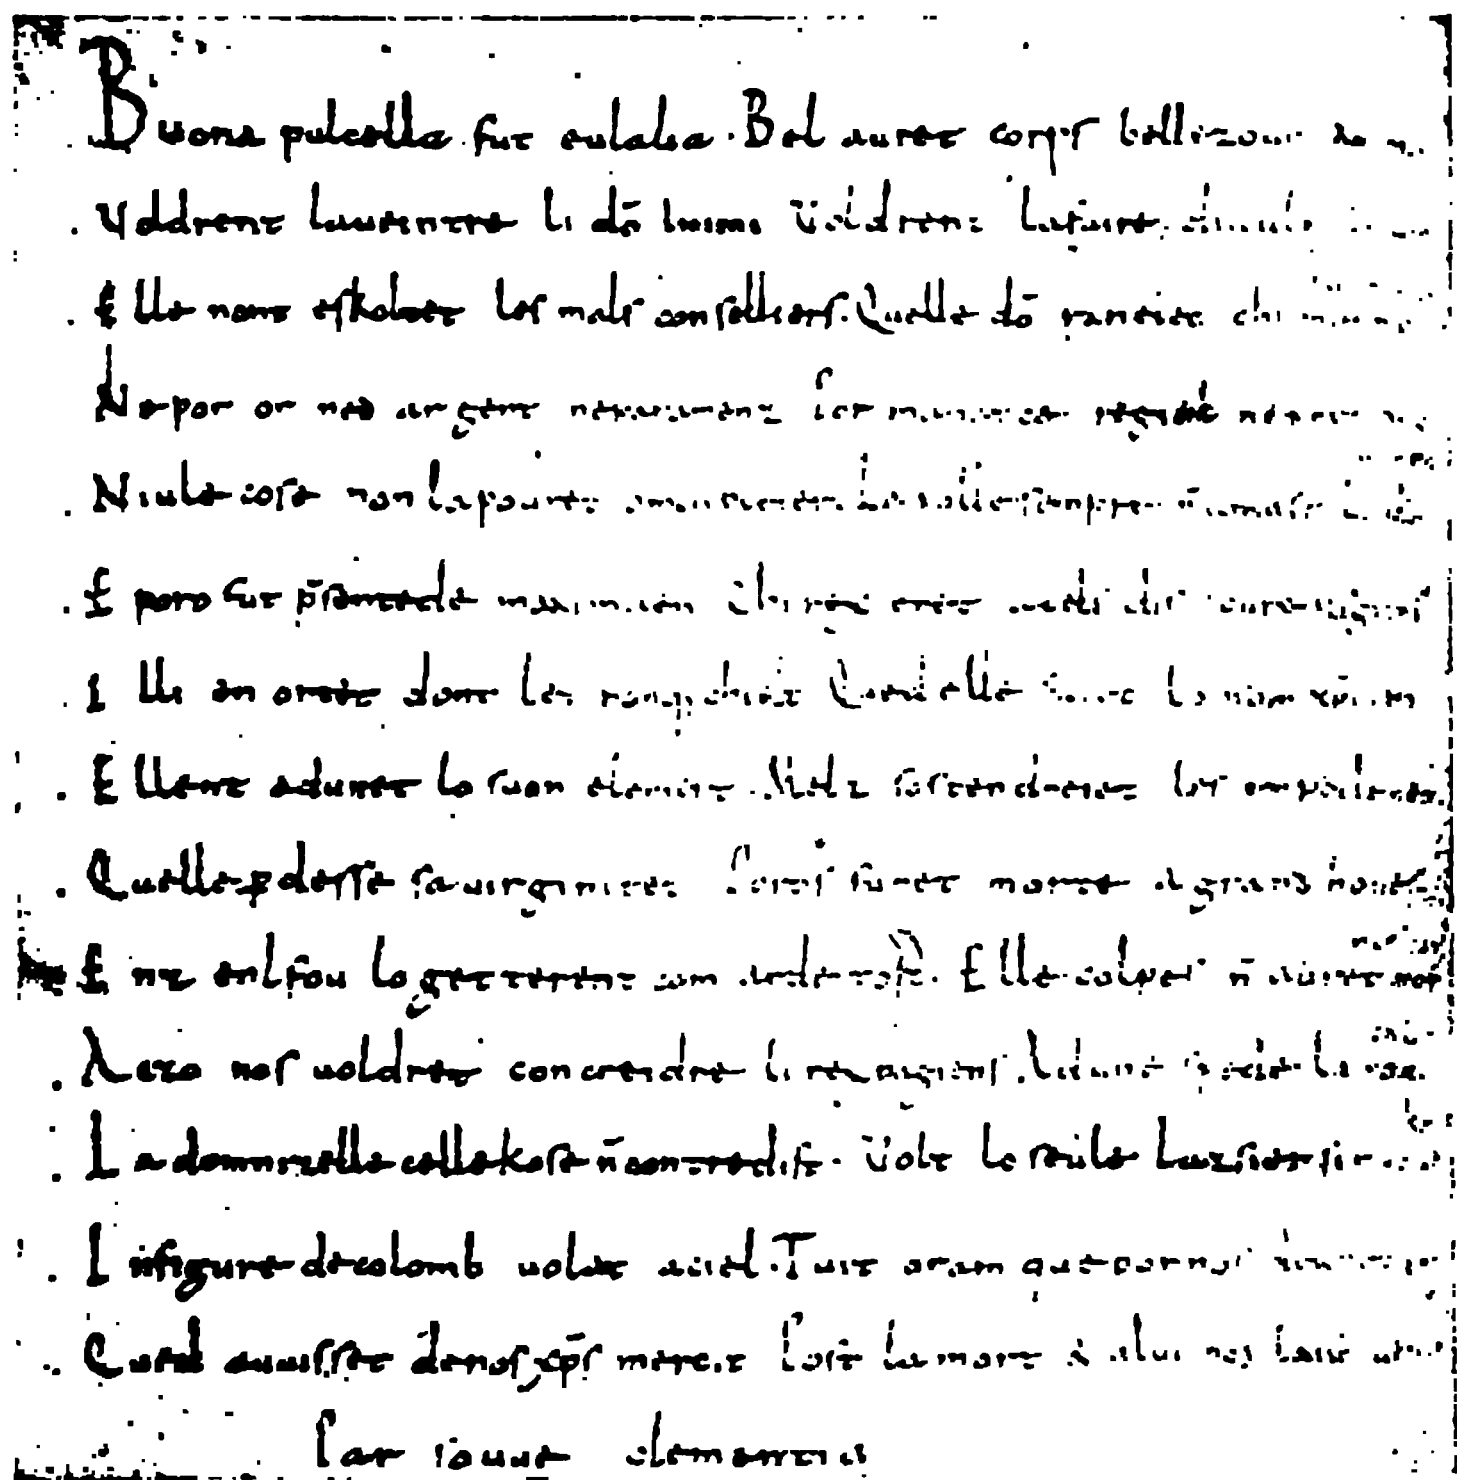 Buona pulcella fut eulalia. Bel auret corps bellezour
Voldrent la ueintre li dō Inimi. Voldrent la faire
Elle nont eskoltet les mals conselliers. Quelle dō raneiet chi
Ne por or ned argent ne paramenz Por manatce regiel ne
Niule cose non la pouret omque pleier. La polle sempre n̄ amast
E poro fut p̄sentede maximiien Chi rex eret a cels dis soure pagiens
Illi en ortet dont lei nonq chielt Qued elle fuiet lo nom xp̄iien
Ellent adunet lo suon element. Melz sostendreiet les empedementz
Quelle p desse sa uirginitet Poros furet morte a grand honestet
Enz enl fou lo getterent com arde tost. Elle colpes n̄ auret
Aczo nos uoldret concreidre li rex pagiens. Ad une spede li
La domnizelle celle kose n̄ contredist. Volt lo seule lazsier si
In figure de colomb uolat a ciel. Tuit oram que por nos
Qued auuisset de nos xp̄s mercit Post la mort & a lui nos laist
Par souue clementia